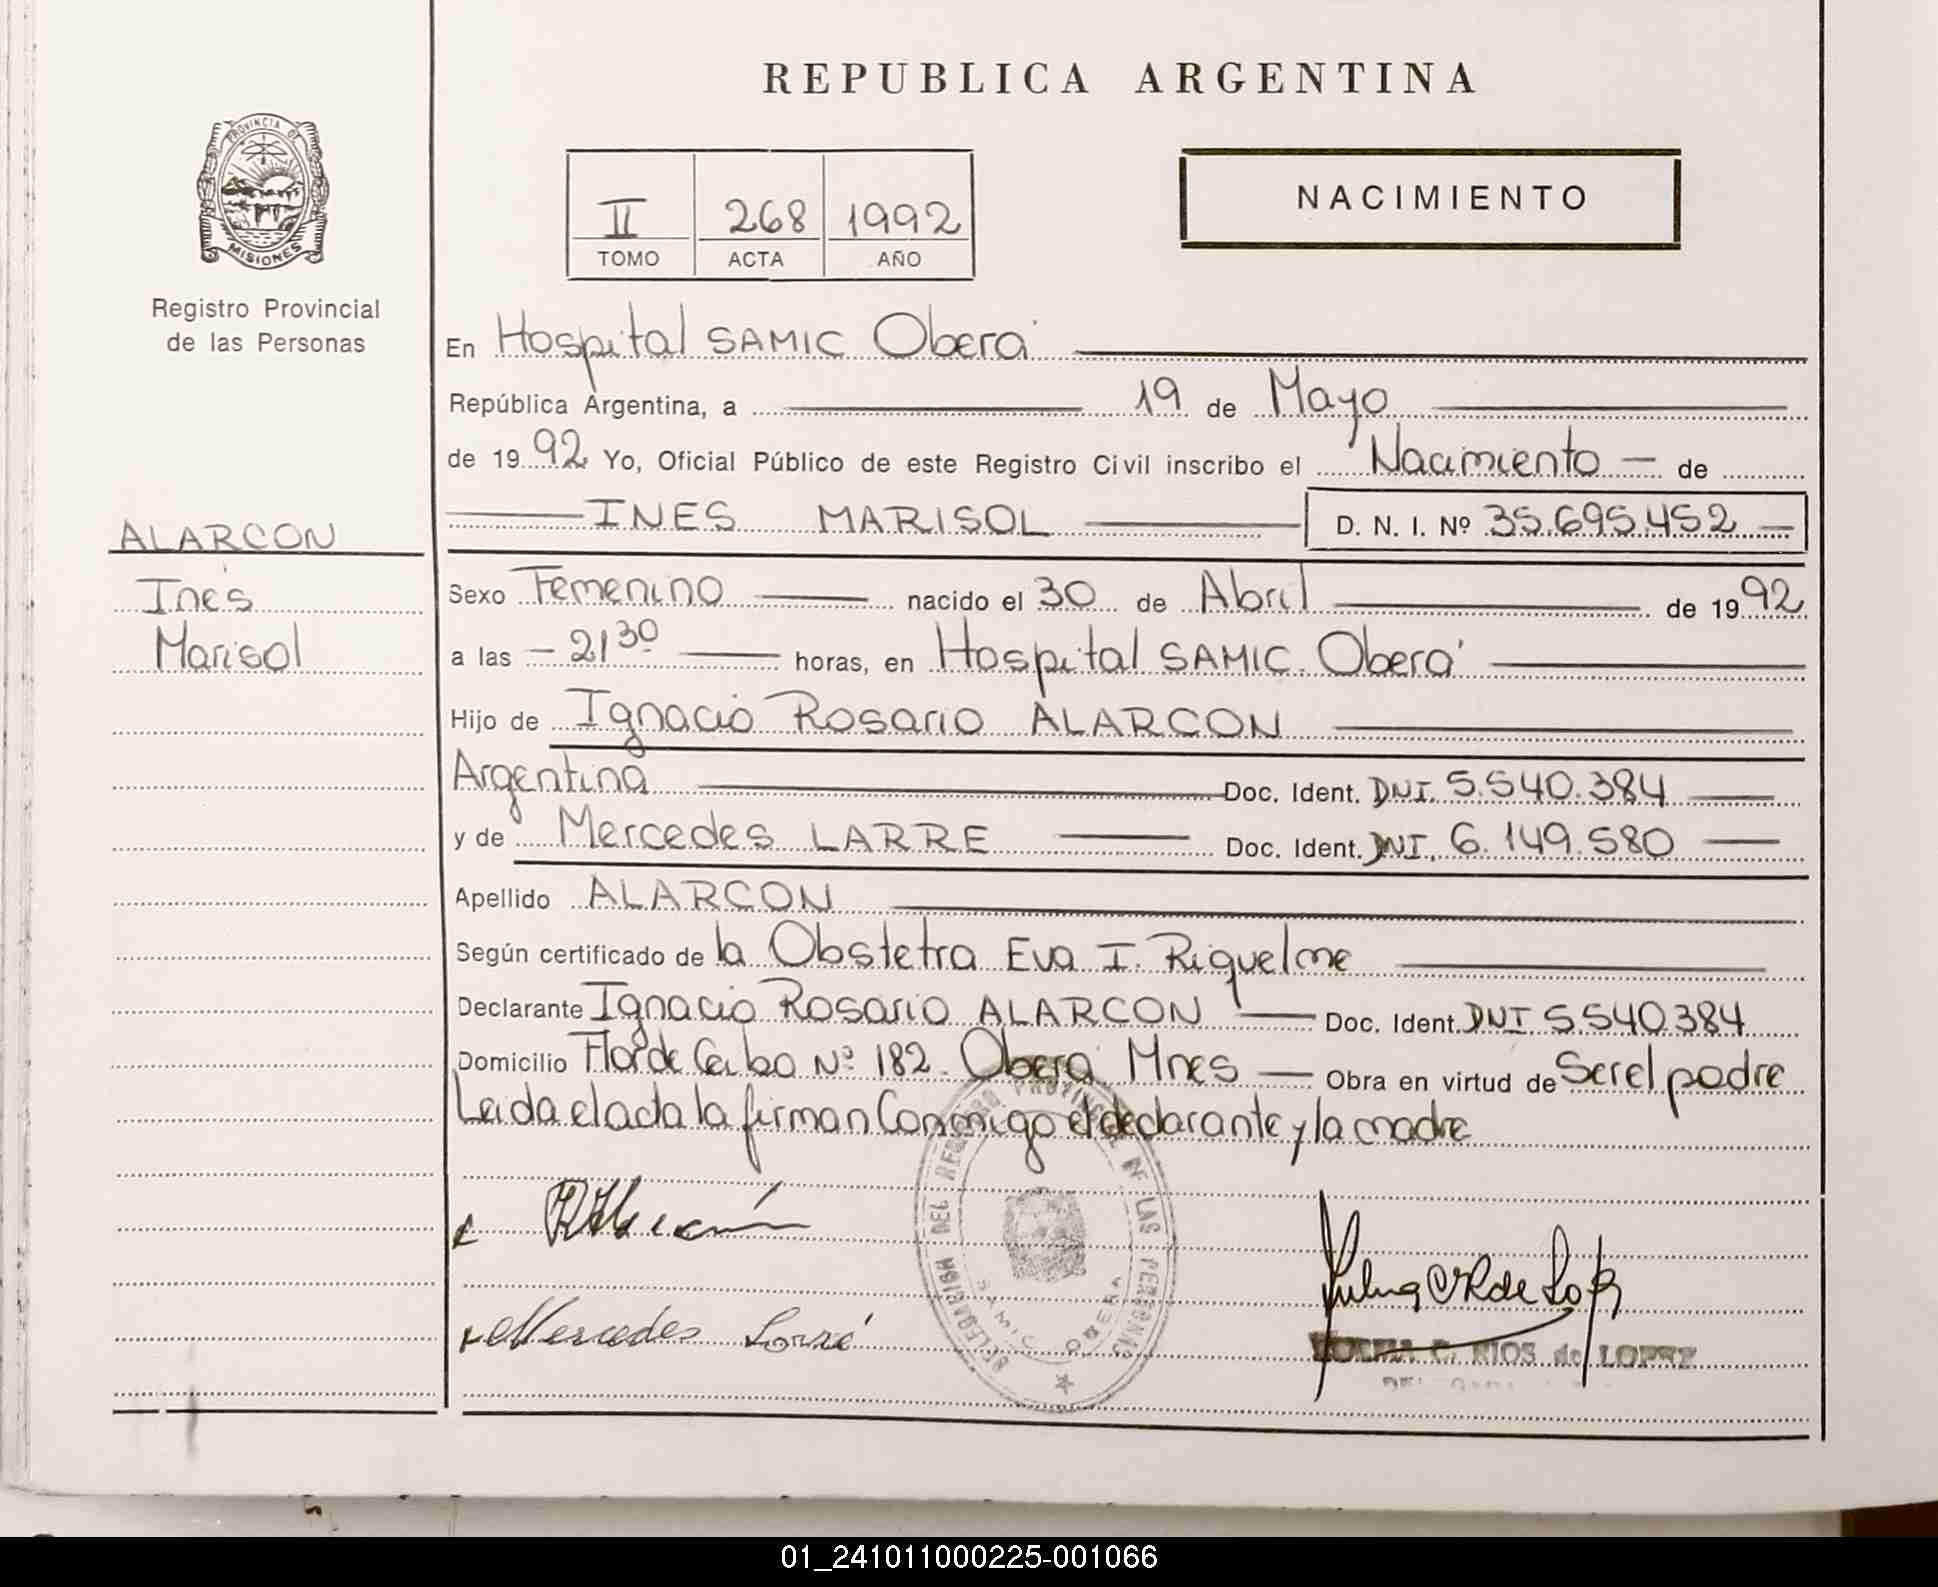 REPUBLICA ARGENTINA
PROVINCIA DE MISIONES
Registro Provincial
de las Personas
II 268 1992
TOMO ACTA AÑO
NACIMIENTO
En Hospital SAMIC Oberá
República Argentina, a 19 de Mayo
de 1992 Yo, Oficial Público de este Registro Civil inscribo el Nacimiento — de
INES MARISOL D. N. I. Nº 35.695.452
ALARCON
Inés
Marisol
Sexo Femenino nacido el 30 de Abril de 1992
a las 21 30 horas, en Hospital SAMIC. Oberá
Hijo de Ignacio Rosario ALARCON
Argentina Doc. Ident. DNI. 5.540.384
y de Mercedes LARRE Doc. Ident. DNI. 6.149.580
Apellido ALARCON
Según certificado de la Obstetra Eva I. Riquelme
Declarante Ignacio Rosario ALARCON Doc. Ident. DNI 5.540.384
Domicilio Flor de Ceibo Nº 182. Oberá Mnes Obra en virtud de Ser el padre
Leida el acta la firman Conmigo el declarante y la madre
DELEGACION DEL REGISTRO PROVINCIAL DE LAS PERSONAS
SAMIC OBERA
Mercedes Larré
C. RIOS de LOPEZ
01_241011000225-001066